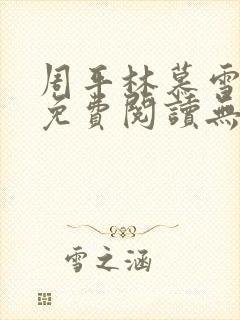 周平林慕雪
免費閱讀無
雪之涵